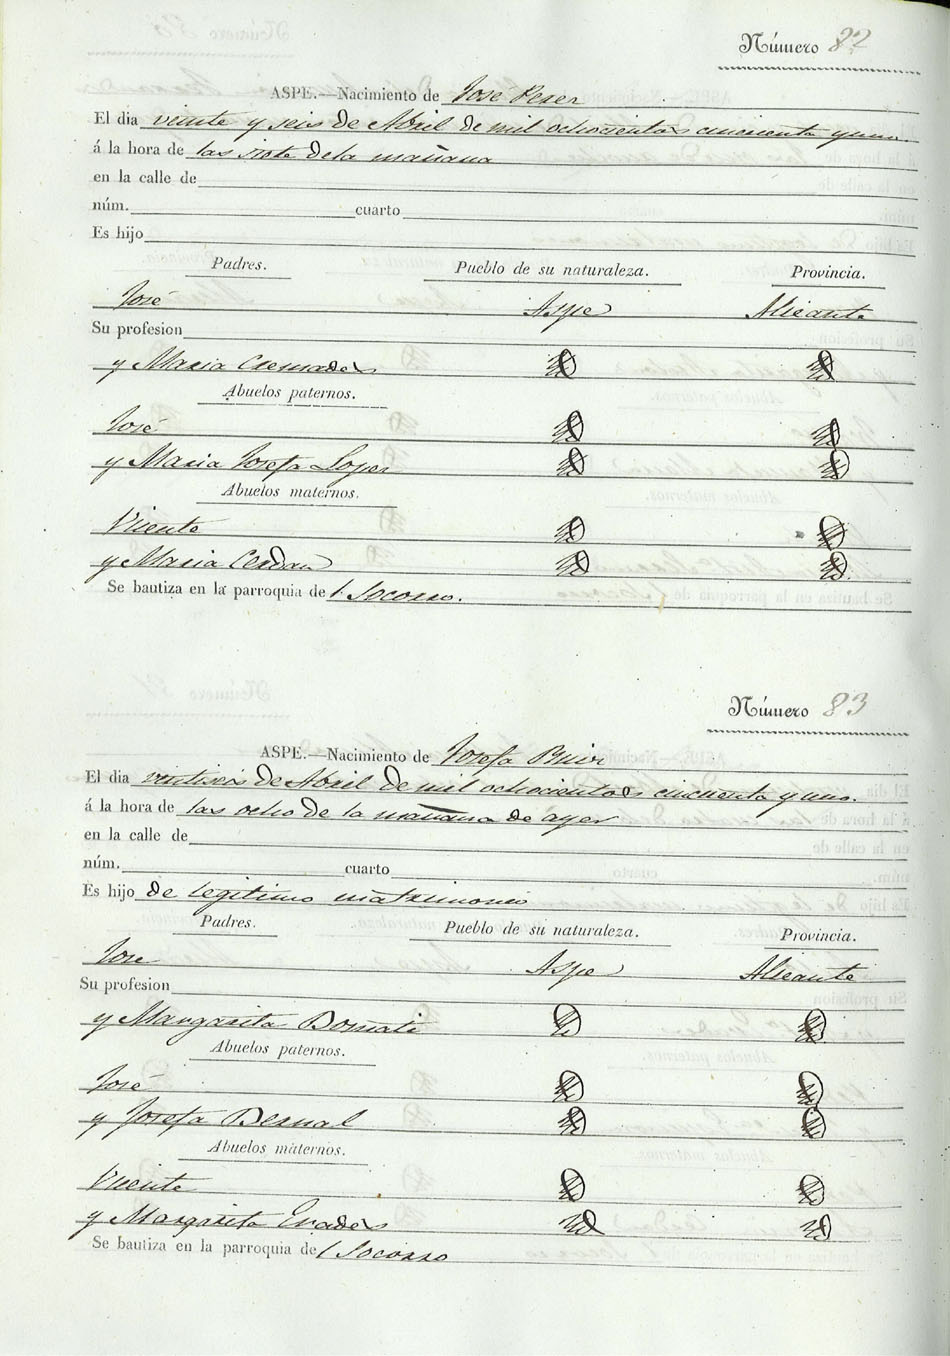 Número 82
ASPE.—Nacimiento de Jose Perez
El dia veinte y seis de Abril de mil ochocientos cincuenta y uno.
á la hora de las siete de la mañana
en la calle de
núm. cuarto
Es hijo
Padres. Pueblo de su naturaleza. Provincia.
José Aspe Alicante
Su profesion
y Maria Cremades Id Id
Abuelos paternos.
José Id Id
y Maria Josefa Lopez Id Id
Abuelos maternos.
Vicente Id Id
y Maria Cerdan Id Id
Se bautiza en la parroquia de l. Socorro.
Número 83
ASPE.—Nacimiento de Josefa
El dia ventiseis de Abril de mil ochocientos cincuenta y uno.
á la hora de las ocho de la mañana de ayer
en la calle de
núm. cuarto
Es hijo de legitimo matrimonio
Padres. Pueblo de su naturaleza. Provincia.
Jose Aspe Alicante
Su profesion
y Margarita Id Id
Abuelos paternos.
José Id Id
y Josefa Bernal Id Id
Abuelos maternos.
Vicente Id Id
y Margarita Id Id
Se bautiza en la parroquia de l Socorro